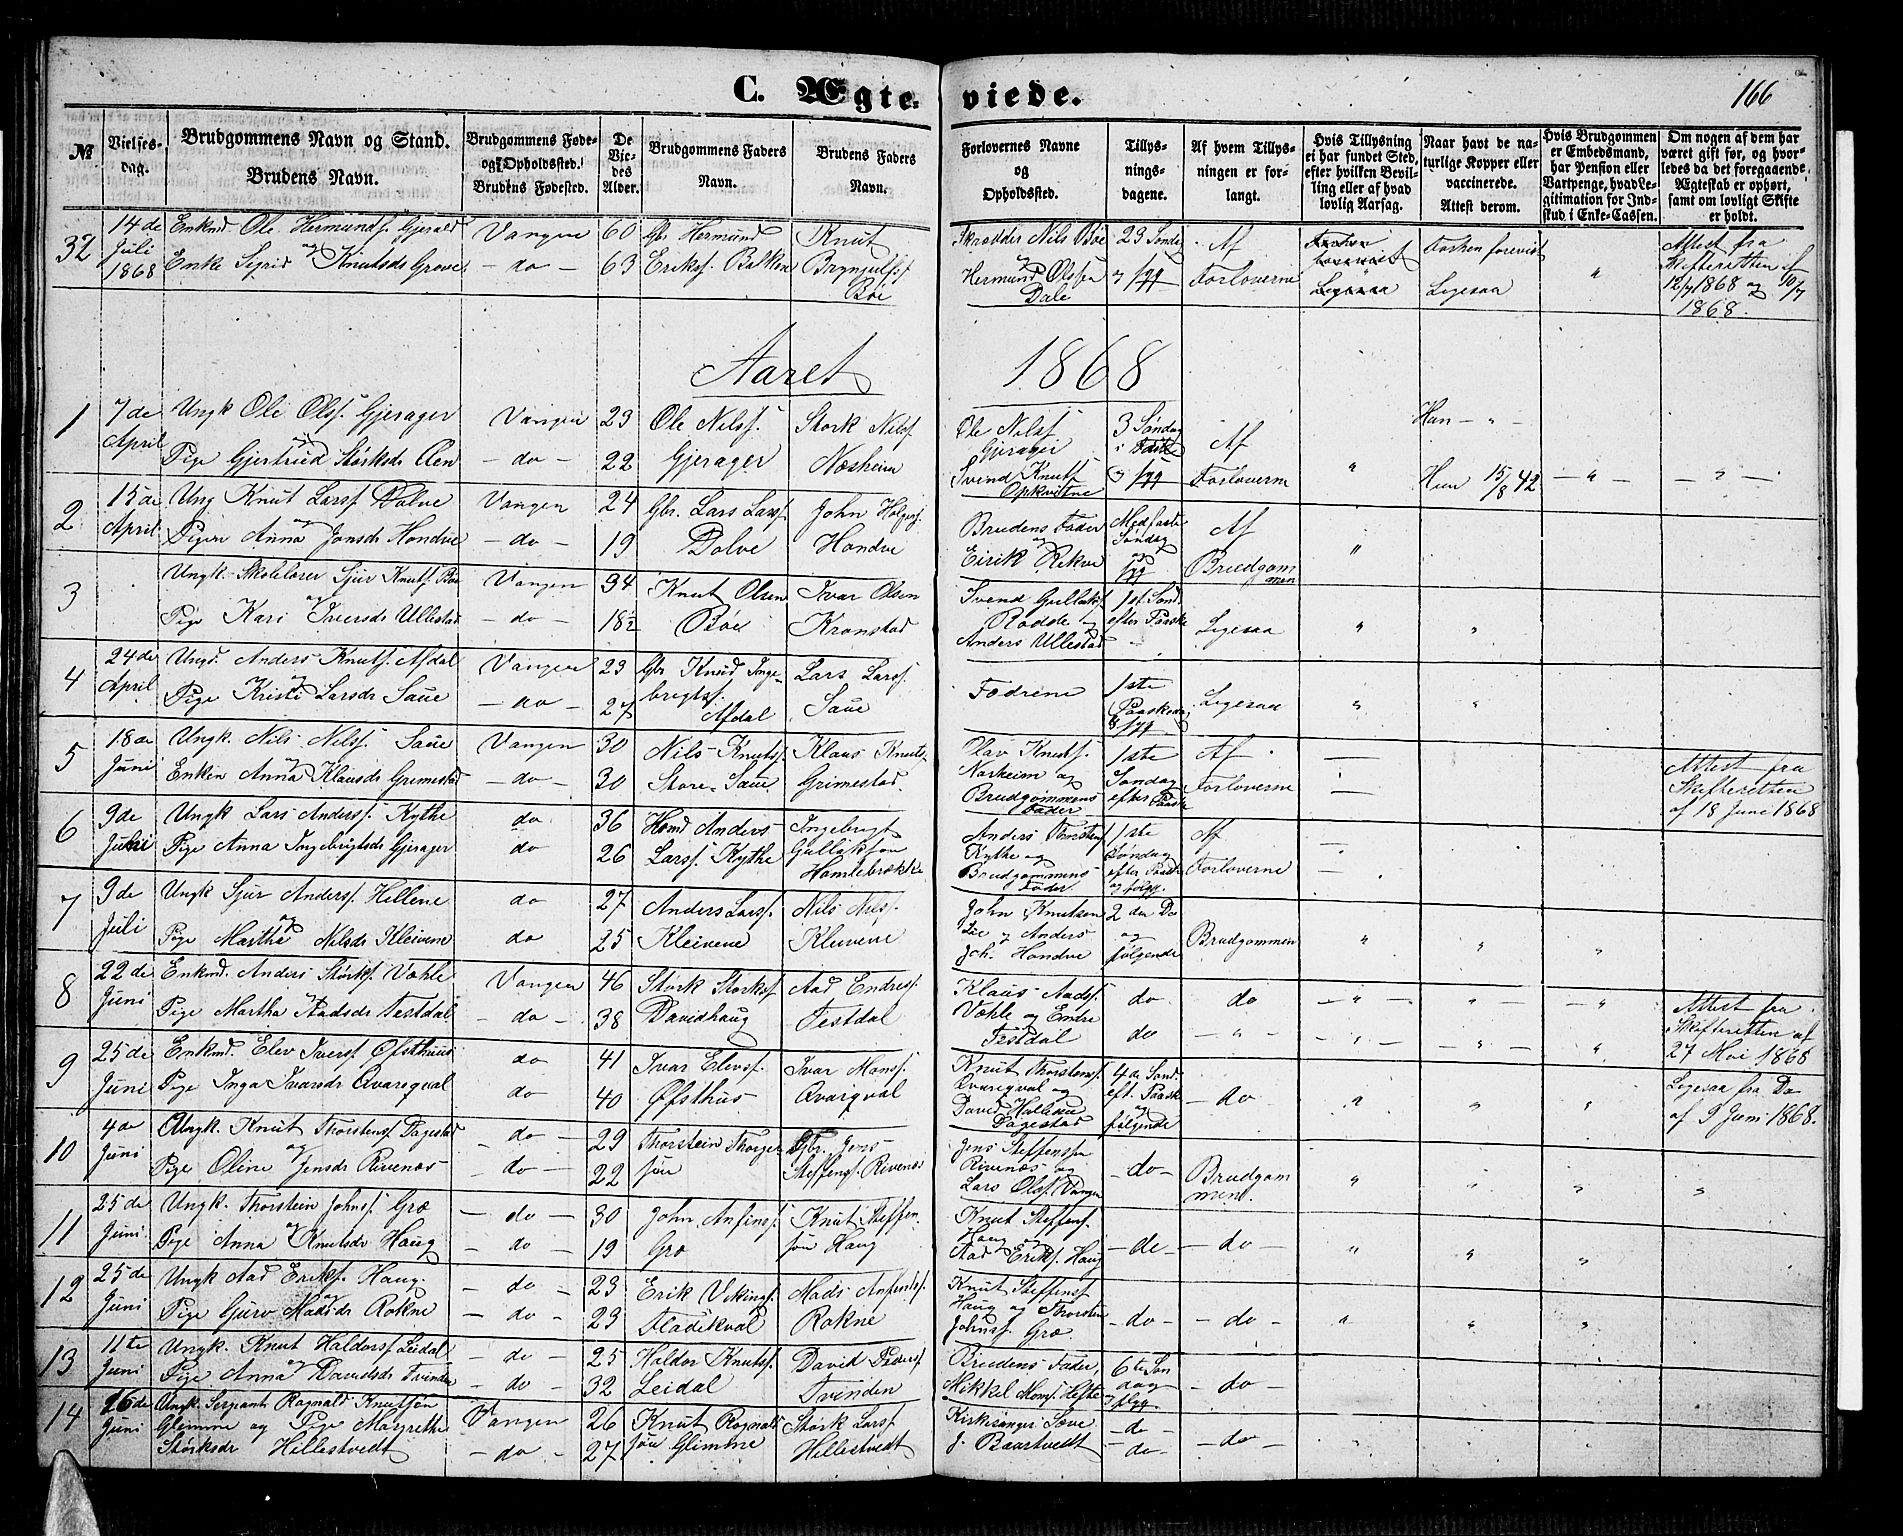 C. Ægteviede.
166
№
Vielses-
dag.
Brudgommens Navn og Stand.
Brudens Navn.
Brudgommens Føde-
og Opholdssted.
Brudens Fødested.
De
Vie-
des
Alder.
Brudgommens Faders
Navn.
Brudens Faders
Navn.
Forlovernes Navne
og
Opholdssted.
Tillys-
nings-
dagene.
Af hvem Tillys-
ningen er for-
langt.
Hvis Tillysning
ei har fundet Sted,
efter hvilken Bevil-
ling eller af hvad
lovlig Aarsag.
Naar havt de na-
turlige Kopper eller
vaccinerede.
Attest derom.
Hvis Brudgommen
er Embedsmand,
har Pension eller
Vartpenge, hvad Le-
gitimation for Ind-
skud i Enke-Cassen.
Om nogen af dem har
været gift før, og hvor-
ledes da det foregaaende
Ægteskab er ophørt,
samt om lovligt Skifte
er holdt.
32
14de
Juli
1868
Enkmd Ole Hermundsf. Gjerald
og
Enke Sigrid Knutsdr Grove
Vangen
- do -
60
63
Gbr Hermund
Eriksf. Bakken
Knut
Brynjulfsf
Bøe
Skrædder Nils Bøe
og
Hermund Olsen
Dale
23 Sondg
Af
Forloverne
Ligesaa
forevist
Ligesaa
"
Attest fra
Skifteretten af
12/7 1868 og 10/7
1868.
Aaret 1868
1
7de
April
Ungk Ole Olsf. Gjerager
Pige Gjertrud Størksdr Aen
Vangen
- do -
23
22
Ole Nilsf.
Gjerager
Størk Nilsf
Næsheim
Ole Nilsf
Gjerager
Svend Knutf
Opkvitne
3 Søndag
i Faste
Af
Forloverne
"
Han - " -
Hun 15/8 42
- " -
- " -
2
15de
April
Ung Knut Larsf Dolve
og
Pigen Anna Jonsdr Hondve
Vangen
- do -
24
19
Gbr. Lars Larsf
Dolve
John Holgersf
Hondve
Brudens Fader
og
Eirik Rekve
Midfaste
Søndag
og
Af
Brudgom
men
"
3
Ungk. Skolelærer Sjur Knutf. Bøe
og
Pige Kari Iversdr Ullestad
Vangen
- do -
34
18½
Knut Olsen
Bøe
Ivar Olsen
Kronstad
Svend Gullaksf
Rodde og
Anders Ullestad
1st Sønd.
efter Paaske
-
Ligesaa
"
"
4
24de
April
Ungd. Anders Knutf. Afdal
og
Pige Kristi Larsdr Saue
Vangen
- do -
23
27
Gbr Knud Inge-
brigtsf.
Afdal
Lars Larsf.
Saue
Fædrene
1ste
Paaskedag
Ligesaa
"
"
5
18de
Juni
Ungk. Nils Nilsf. Saue
og
Enken Anna Klausdr Grimestad
Vangen
- do -
30
30
Nils Knutsf.
Store-Saue
Klaus Knuts-
Grimestad.
Olav Knutsf.
Nærheim og
Brudgommens
Fader
1ste
Søndag
efter Paaske
Af
Forloverne
Attest fra
Skifteretten
af 18 Juni 1868
6
9de
Juli
Ungk Lars Andersf. Kythe
Pige Anna Ingebrigtsdr Gjerager
do
do
36
26
Hmd Anders
Larsf. Kythe
Ingebrigt
Gullakson
Hamlebrække
Anders Thorstensf
Kythe og
Brudgommens
Fader.
1ste
Søndag
efter Paaske
og følgg.
Af
Forloverne
7
9de
Juli
Ungk Sjur Andersf. Hellene
og
Pige Martha Nilsdr Kleivene
do
do
27
25
Anders Larsf.
Kleivene
Nils Nilsf.
Kleivene
John Knutsen
og Anders
Joh. Hondve
2 den Do
og
følgende
Brudgommen
"
"
"
8
22de
Juni
Enkmd. Anders Størksf. Væhle
Pige Martha Aadsdr Festdal
Vangen
- do -
46
38
Størk Størksf
Davidhaug
Aad Endresf.
Festdal
Klaus Aadsf.
Væhle og Endre
Festdal
do
do
do
- " -
Attest fra
Skifteretten af
27 Mai 1868
9
25de
Juni
Enkmd. Elev Iversf Øfsthuus
Pige Inga Ivarsdr Qvareqval
do
do
41
40
Ivar Elevsf.
Øfsthus
Ivar Monsf.
Qvarqval
Knut Thorstensf.
Qvarqval og
David
Dagestad
4de Sønd
eft. Paaske
og
følgende
- do -
"
"
"
Ligesaa fra Do
af 9 Juni 1868.
10
4de
Juni
Ungk. Knut Thorstensf Dagestad
og
Pige Oline Jensdr Rivenæs
- do -
- do -
29
22
Thorstein Thorger
søn
Gbr. Jens
Steffensf. Rivenæs
Jens Steffensf
Rivenæs og
Lars Olsf. Vangen
- do -
Brudgom
men.
"
"
"
"
11
25de
Juni
Ungk. Thorstein Johnsf. Græ
og
Pige Anna Knutsdr Haug
- do -
- do -
30
19
John Anfinsf.
Græ
Knut Steffen
søn Haug
Knut Steffensf.
Haug og
Aad Eriksf. Haug
- do -
- do -
"
"
"
12
25de
Juni
Ungk Aad Eriksf. Haug.
og
Pige Guro Madsdr Rokne
- do -
- do -
23
23
Erik Vikingsf.
Fladekval
Mads Anfindsf.
Rokne
Knut Steffensf
Haug og Thorsten
Johnsf. Græ
- do -
- do -
"
"
"
13
11te
Juni
Ungk. Knut Haldorsf Leidal
og
Pige Anna Davidsdr Tvinde
- do -
- do -
25
32
Haldor Knutsf.
Leidal
David Pedersf
Tvinden
Brudens Fader,
Mikkel Monsf Hefte
6te Søn
dag
og flgg.
- do -
14
26de
Juni
Ungk. Serjeant Ragnald Knutsøn
Glimme og Pige Margrethe
Størksdr Hillestvedt
Vangen
- do -
26
27
Knut Ragnald
søn Glimme
Størk Larsf
Hillestvedt
Kirkesanger Sæve
J. Baarstvedt
- do -
- do -
- do -